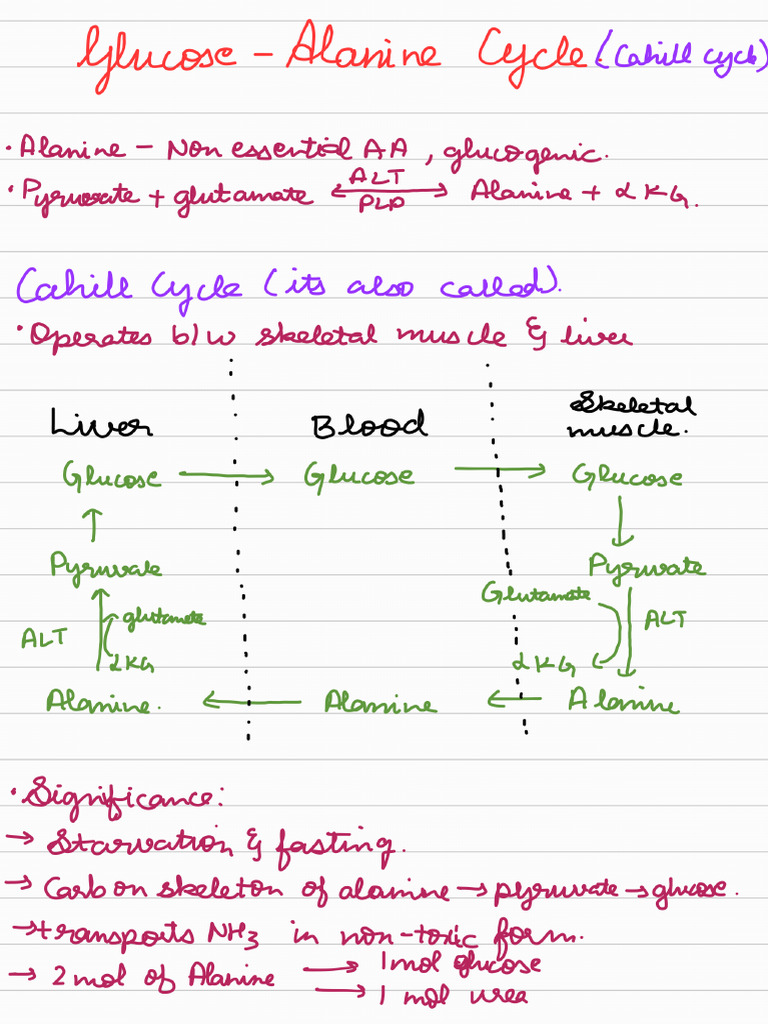 Glucose - Alanine Cycle (Cahill cycle)
· Alanine - Non essential AA, glucogenic.
ALT
· Pyruvate + glutamate ⟷ Alanine + αKG.
PLP
Cahill Cycle (its also called).
· Operates b/w skeletal muscle & liver
Liver Blood Skeletal muscle.
Glucose → Glucose → Glucose
↑ ↓
Pyruvate Pyruvate
glutamate Glutamate
ALT ALT
αKG αKG
Alanine. ← Alanine ← Alanine
· Significance:
→ Starvation & fasting.
→ Carbon skeleton of alanine → pyruvate → glucose.
→ transports NH3 in non-toxic form.
→ 2 mol of Alanine → 1 mol glucose
→ 1 mol urea